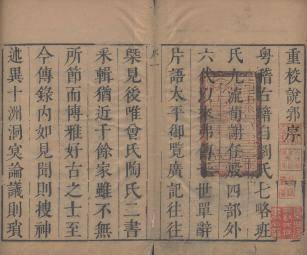 重校說郛序
粵稽古籍自劉氏七略班
氏九流荀謝任殷四部外
六代以來郛傳一世單辭
片語太平御覽廣記往往
槩見後唯曾氏陶氏二書
釆輯猶近千餘家雖不無
所節而博雅好古之士以
今傳錄內如見聞則搜神
述異十洲洞冥論議則瑣